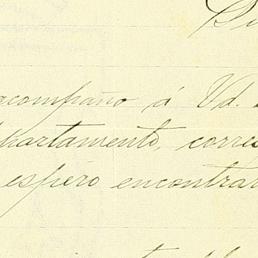 acompaño á Vd.
partamento, corres
espero encontrar